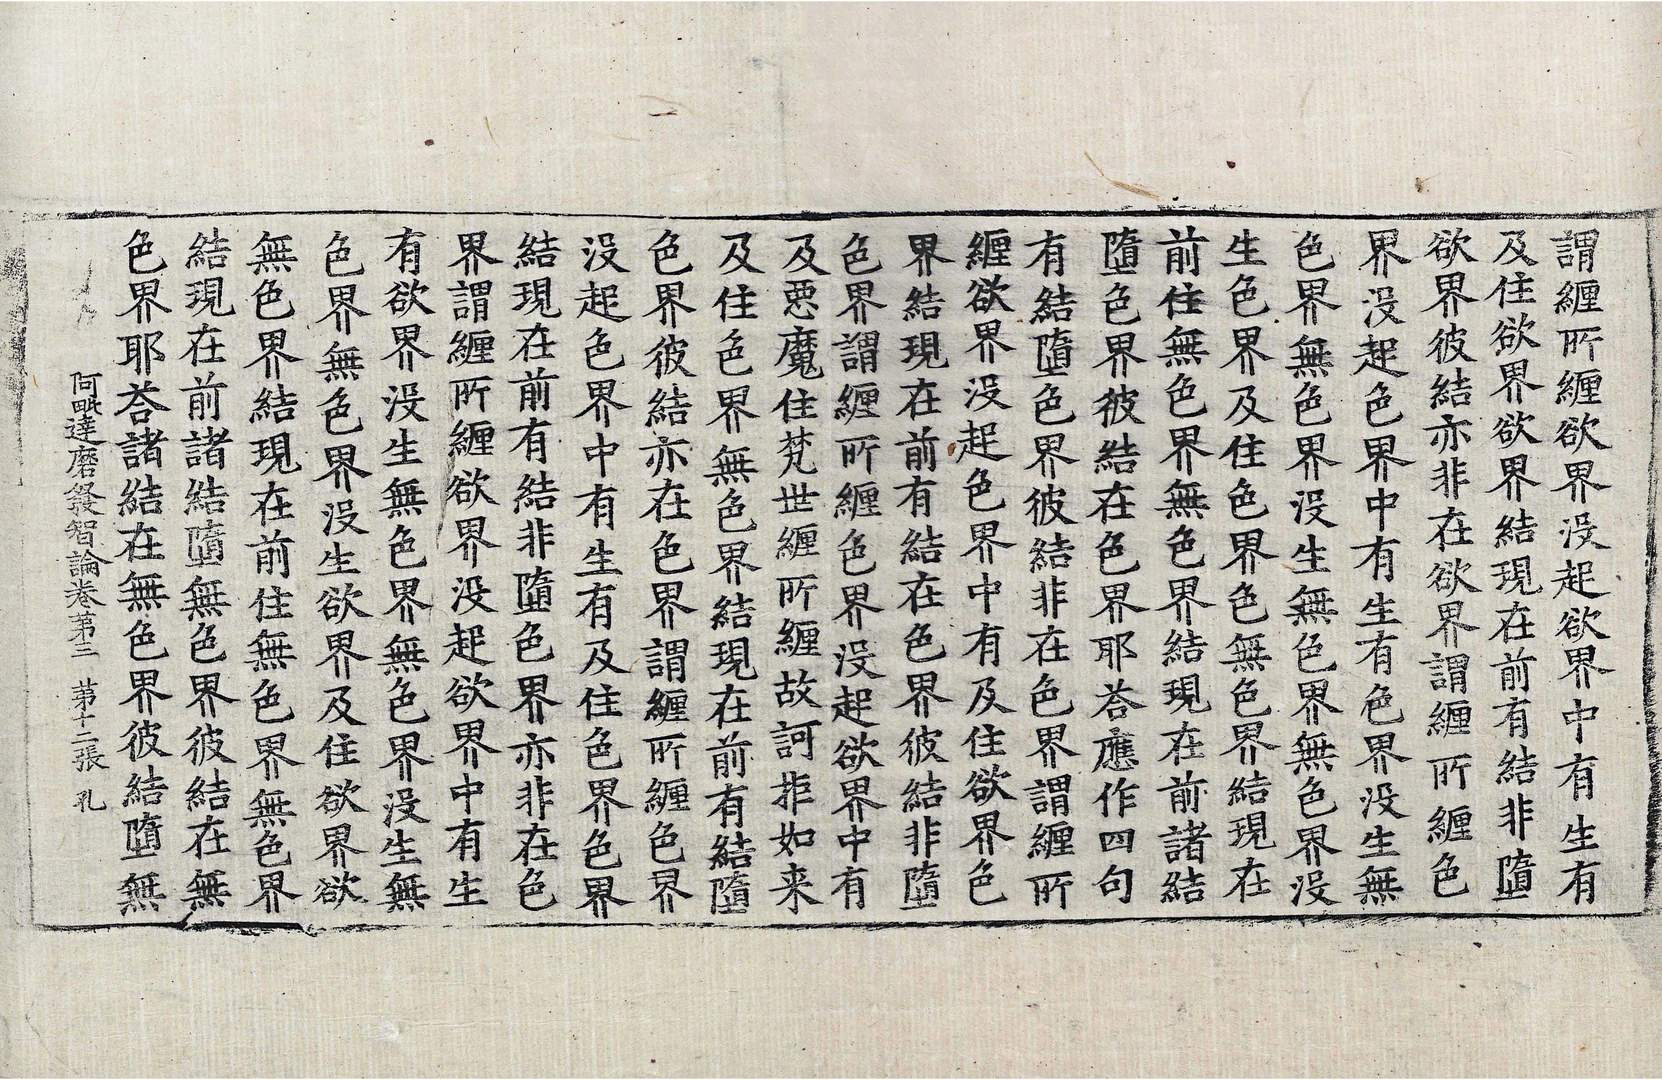 謂纏所纏欲界没起欲界中有生有
及住欲界欲界結現在前有結非墮
欲界彼結亦非在欲界謂纏所纏色
界没起色界中有生有色界没生無
色界無色界没生無色界無色界没
生色界及住色界色無色界結現在
前住無色界無色界結現在前諸結
墮色界彼結在色界耶荅應作四句
有結墮色界彼結非在色界謂纏所
纏欲界没起色界中有及住欲界色
界結現在前有結在色界彼結非墮
色界謂纏所纏色界没起欲界中有
及惡魔住梵世纏所纏故訶拒如来
及住色界無色界結現在前有結墮
色界彼結亦在色界謂纏所纏色界
没起色界中有生有及住色界色界
結現在前有結非墮色界亦非在色
界謂纏所纏欲界没起欲界中有生
有欲界没生無色界無色界没生無
色界無色界没生欲界及住欲界欲
無色界結現在前住無色界無色界
結現在前諸結墮無色界彼結在無
色界耶荅諸結在無色界彼結墮無
阿毗達磨發智論卷第三 第十二張 孔